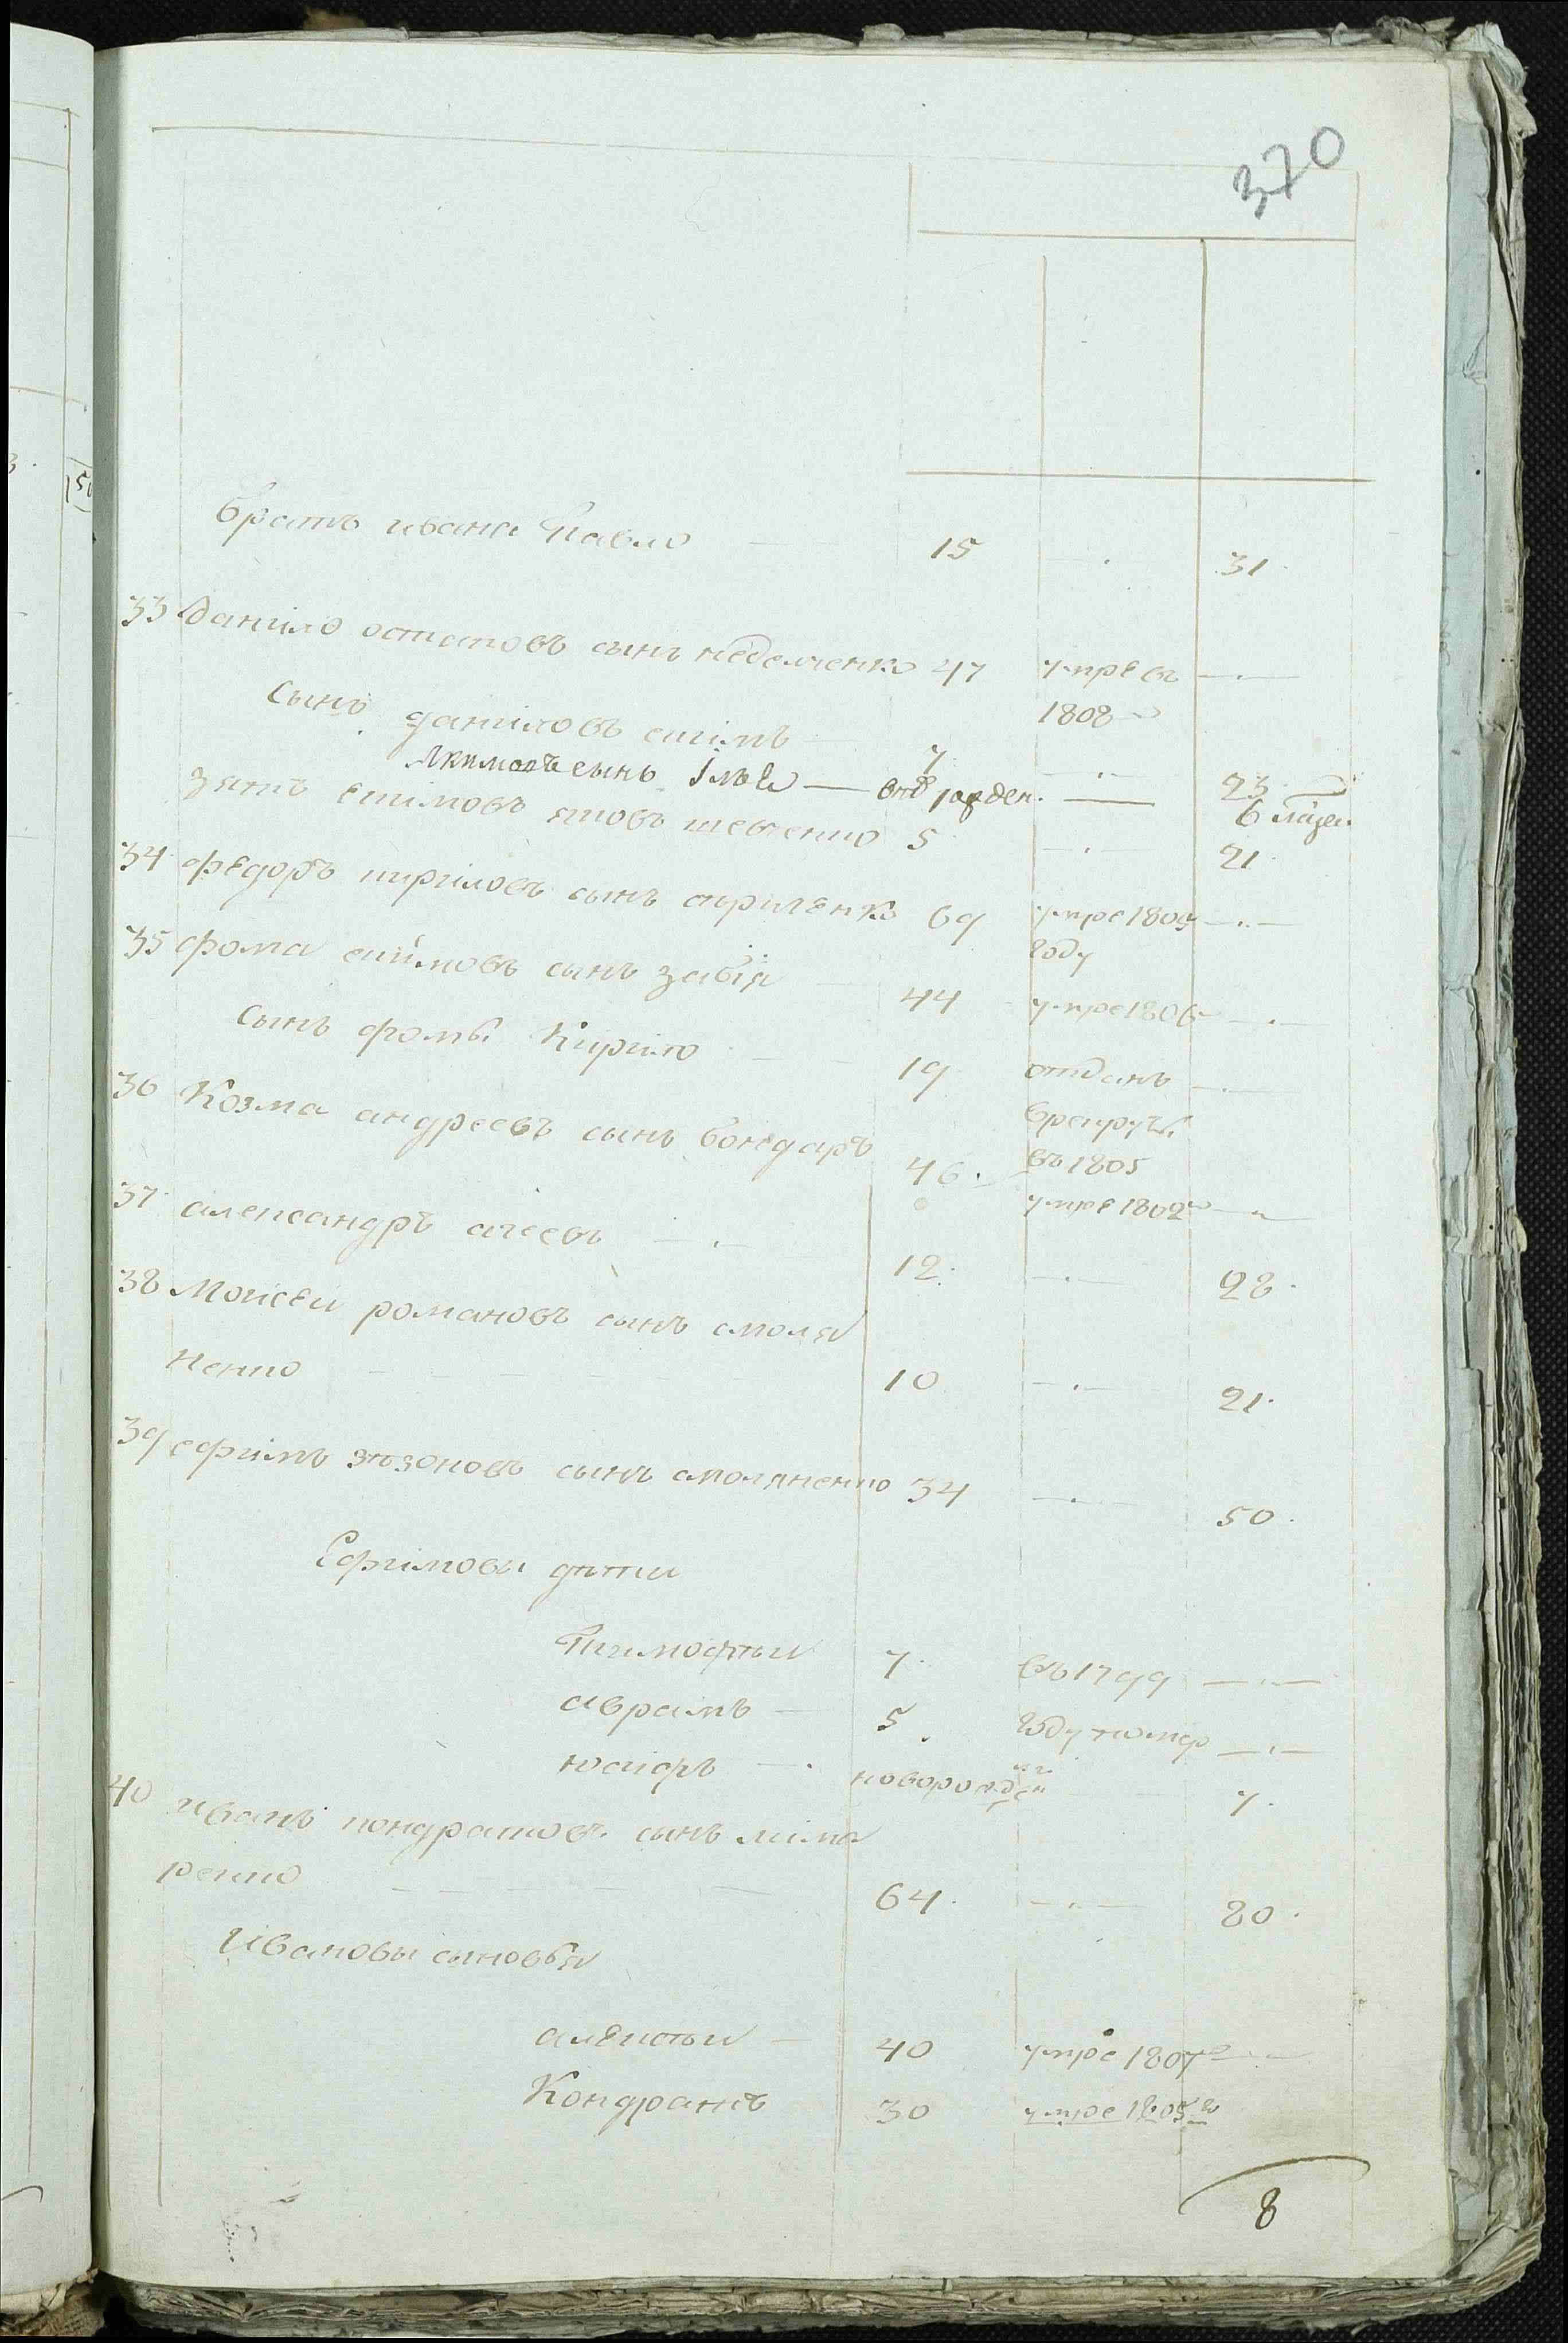 370
братъ ивана Павло 15 31.
33 Данило остаповъ сынъ неделченко 47 умре въ
1808
сынъ даниловъ екимъ 7. 23
Якимовъ сынъ Ілья 6
зять екимовъ яковъ шевченко 5 21
34 федоръ кириловъ сынъ кириленко 69 умре 1805
году
35 фома екимовъ сынъ забія 44 умре 1806
сынъ фомы Кирило 19 отданъ
врекруты
въ 1805
36 Козма андреевъ сынъ бондаръ 46. умре 1802
37 александръ агеевъ 12. 28.
38 Моисеи романовъ сынъ смоля
ненко 10 21.
39 ефимъ сынъ смоляненко 34 50.
Ефимовы дѣти
Тимофѣи 7. въ 1799
аврамъ 5. году помер
юсифъ новорожден 7.
40 иванъ кондратовъ сынъ лима
ренко 64. 80.
Ивановы сыновья
алексѣи 40 умре 1807
Кондратъ 30 умре 1805
8